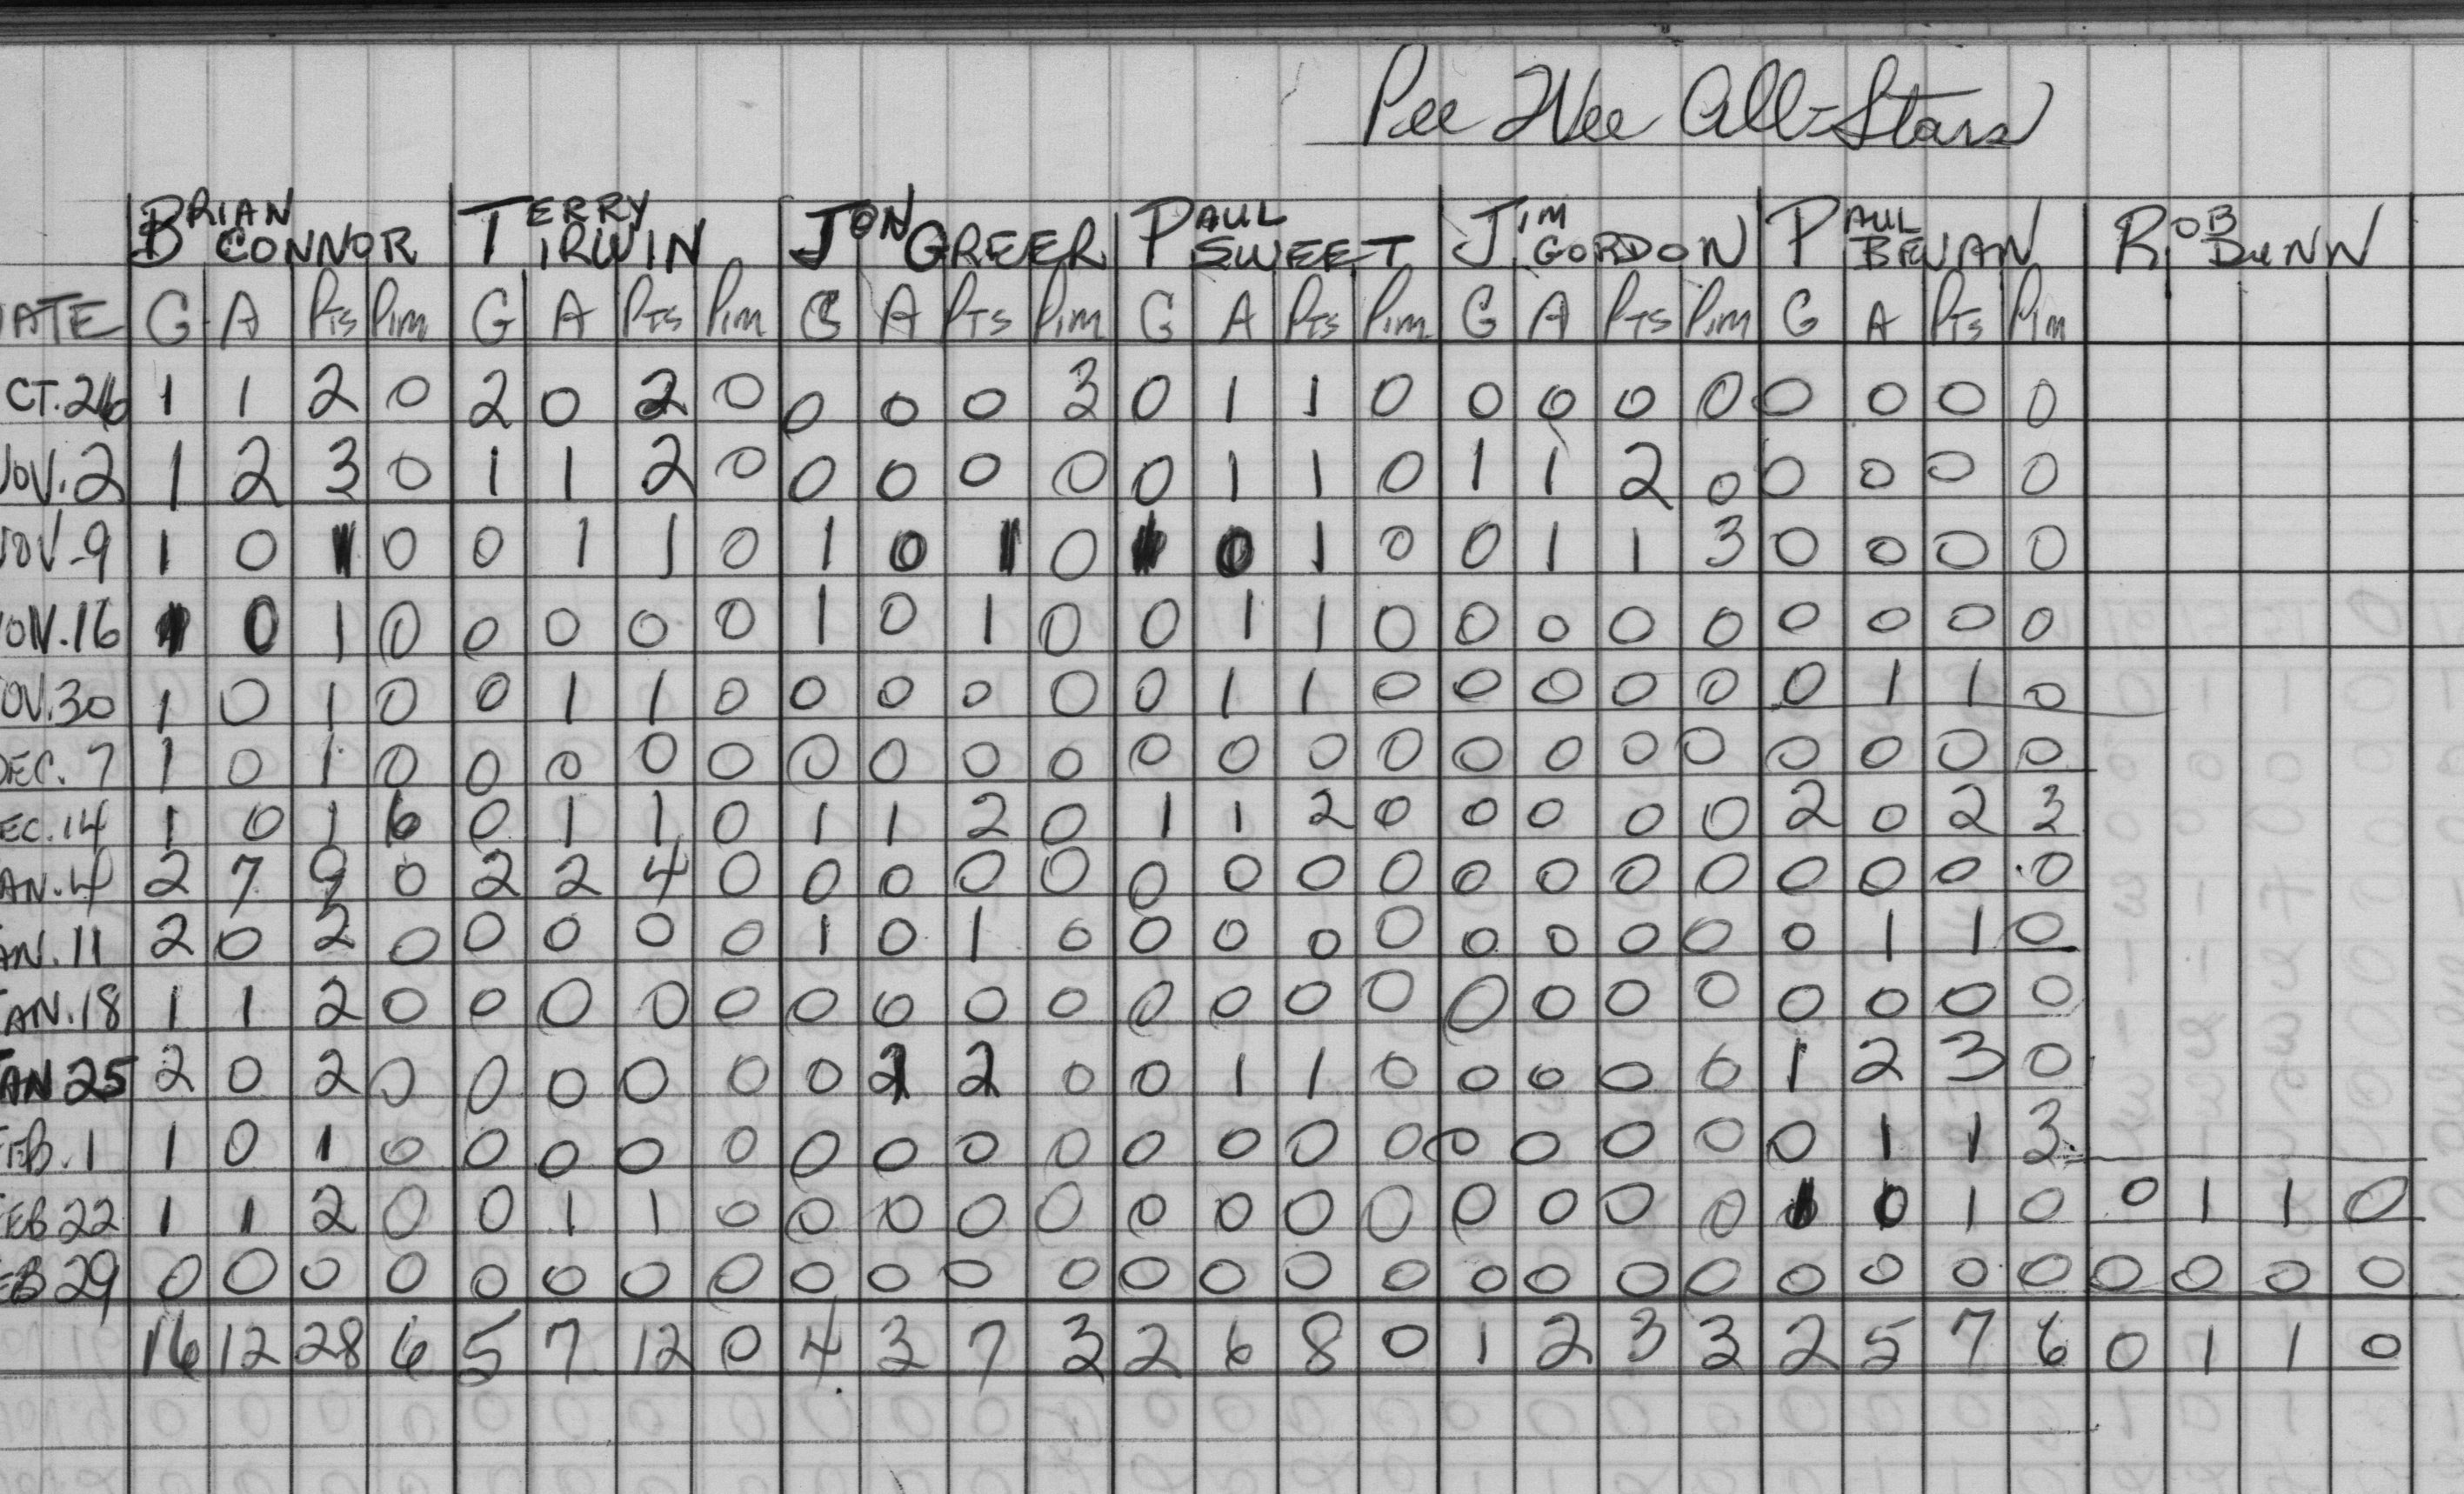 Pee Wee All-Stars
BRIAN CONNOR TERRY IRWIN JON GREER PAUL SWEET JIM GORDON PAUL BEVAN ROB DUNN
ATE G A Pts Pim G A Pts Pim G A Pts Pim G A Pts Pim G A Pts Pim G A Pts Pim
CT. 26 1 1 2 0 2 0 2 0 0 0 0 3 0 1 1 0 0 0 0 0 0 0 0 0
NOV. 2 1 2 3 0 1 1 2 0 0 0 0 0 0 1 1 0 1 1 2 0 0 0 0 0
NOV. 9 1 0 1 0 0 1 1 0 1 0 1 0 1 0 1 0 0 1 1 3 0 0 0 0
NOV. 16 1 0 1 0 0 0 0 0 1 0 1 0 0 1 1 0 0 0 0 0 0 0 0 0
OV. 30 1 0 1 0 0 1 1 0 0 0 0 0 0 1 1 0 0 0 0 0 0 1 1 0
DEC. 7 1 0 1 0 0 0 0 0 0 0 0 0 0 0 0 0 0 0 0 0 0 0 0 0
EC. 14 1 0 1 6 0 1 1 0 1 1 2 0 1 1 2 0 0 0 0 0 2 0 2 3
AN. 4 2 7 9 0 2 2 4 0 0 0 0 0 0 0 0 0 0 0 0 0 0 0 0 0
AN. 11 2 0 2 0 0 0 0 0 1 0 1 0 0 0 0 0 0 0 0 0 0 1 1 0
AN. 18 1 1 2 0 0 0 0 0 0 0 0 0 0 0 0 0 0 0 0 0 0 0 0 0
JAN 25 2 0 2 0 0 0 0 0 0 2 2 0 0 1 1 0 0 0 0 0 1 2 3 0
FEB. 1 1 0 1 0 0 0 0 0 0 0 0 0 0 0 0 0 0 0 0 0 0 1 1 3
FEB 22 1 1 2 0 0 1 1 0 0 0 0 0 0 0 0 0 0 0 0 0 1 0 1 0 0 1 1 0
EB 29 0 0 0 0 0 0 0 0 0 0 0 0 0 0 0 0 0 0 0 0 0 0 0 0 0 0 0 0
16 12 28 6 5 7 12 0 4 3 7 3 2 6 8 0 1 2 3 3 2 5 7 6 0 1 1 0